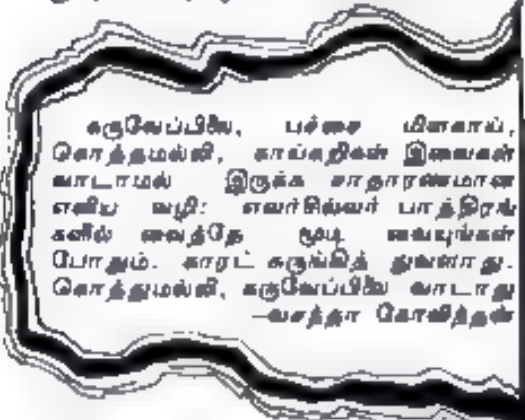 கருவேப்பிலை, பச்சை மிளகாய்,
கொத்தமல்லி, காய்கறிகள் இவைகள்
வாடாமல் இருக்க சாதாரணமான
எளிய வழி: எவர்சில்வர் பாத்திரங்
களில் வைத்தே மூடி வையுங்கள்
போதும். காரட் சுருங்கித் துவளாது.
கொத்துமல்லி, கருவேப்பிலை வாடாது
—வசந்தா கோவிந்தன்